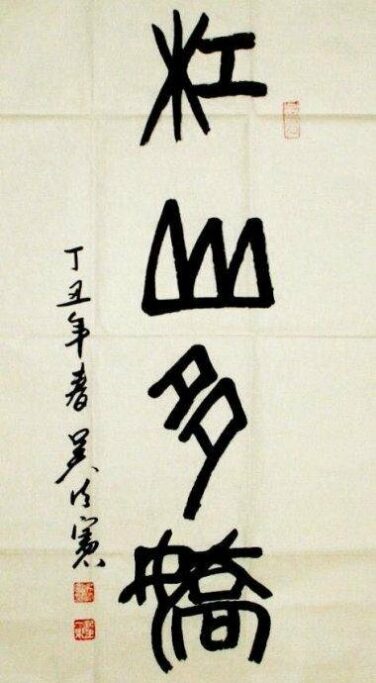 江山多嬌
丁丑年春 吴